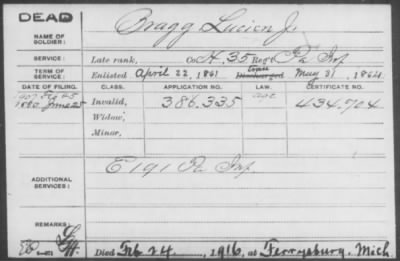 DEAD
NAME OF SOLDIER: Bragg Lucien J.
SERVICE: Late rank, Co. H, 35 Reg't Pa Inf
TERM OF SERVICE: Enlisted April 22, 1861 Discharged May 31, 1864
DATE OF FILING. CLASS. APPLICATION NO. LAW. CERTIFICATE NO.
1880 June 25 Invalid, 386.335 434.704
Widow,
Minor,
ADDITIONAL SERVICES: E 191 Pa Inf.
REMARKS:
Died Feb 24, 1916, at Ferrysburg, Mich